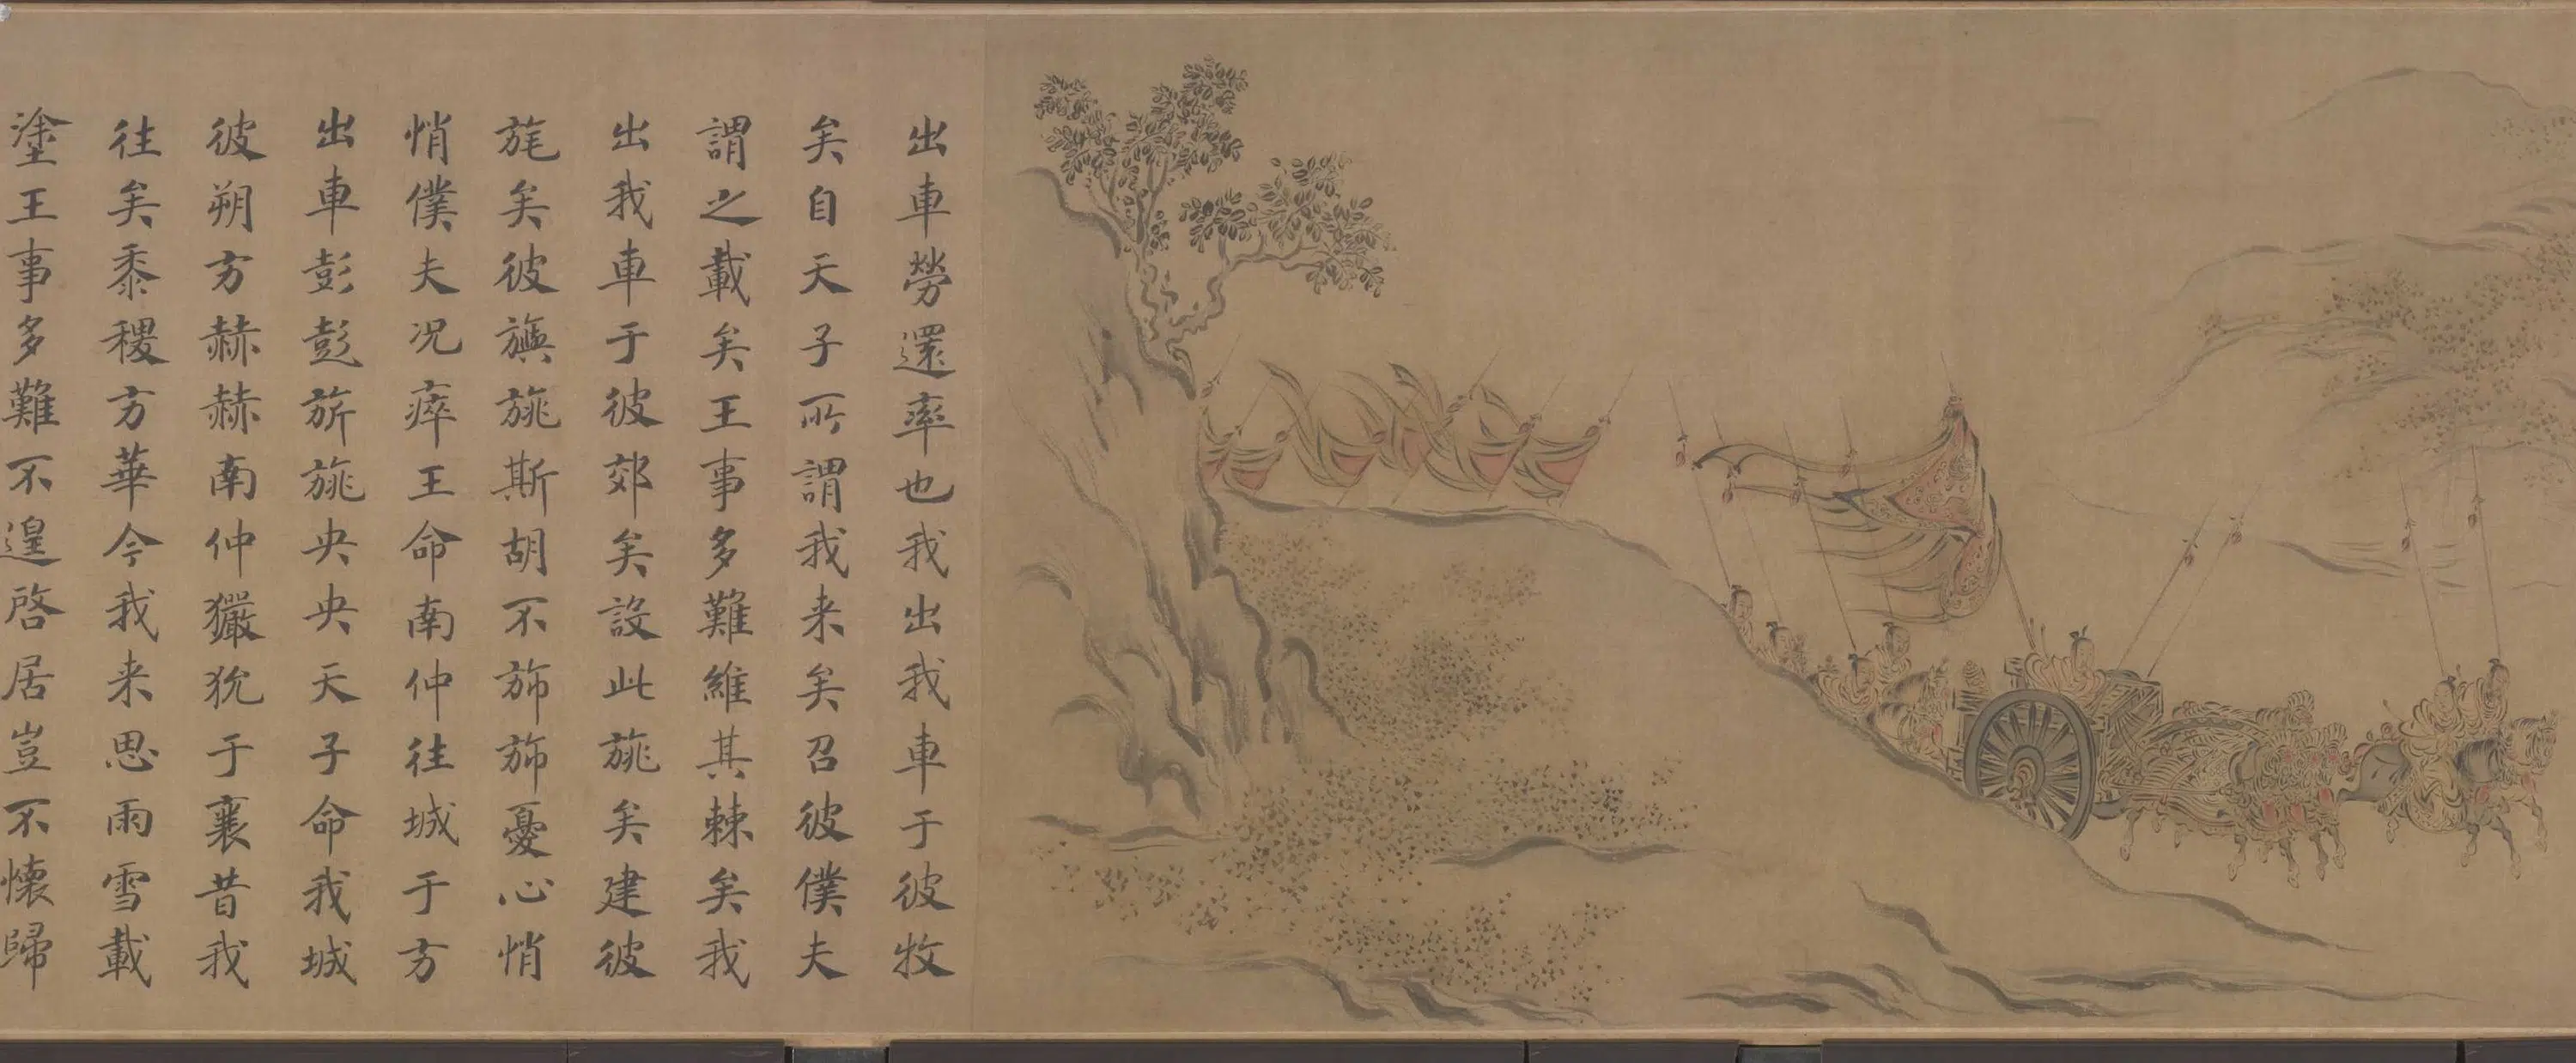 出車勞還率也我出我車于彼牧
矣自天子所謂我来矣召彼僕夫
謂之載矣王事多難維其棘矣我
出我車于彼郊矣設此旐矣建彼
旄矣彼旟旐斯胡不斾斾憂心悄
悄僕夫况瘁王命南仲往城于方
出車彭彭旂旐央央天子命我城
彼朔方赫赫南仲玁狁于襄昔我
往矣黍稷方華今我来思雨雪載
塗王事多難不遑啓居豈不懐歸